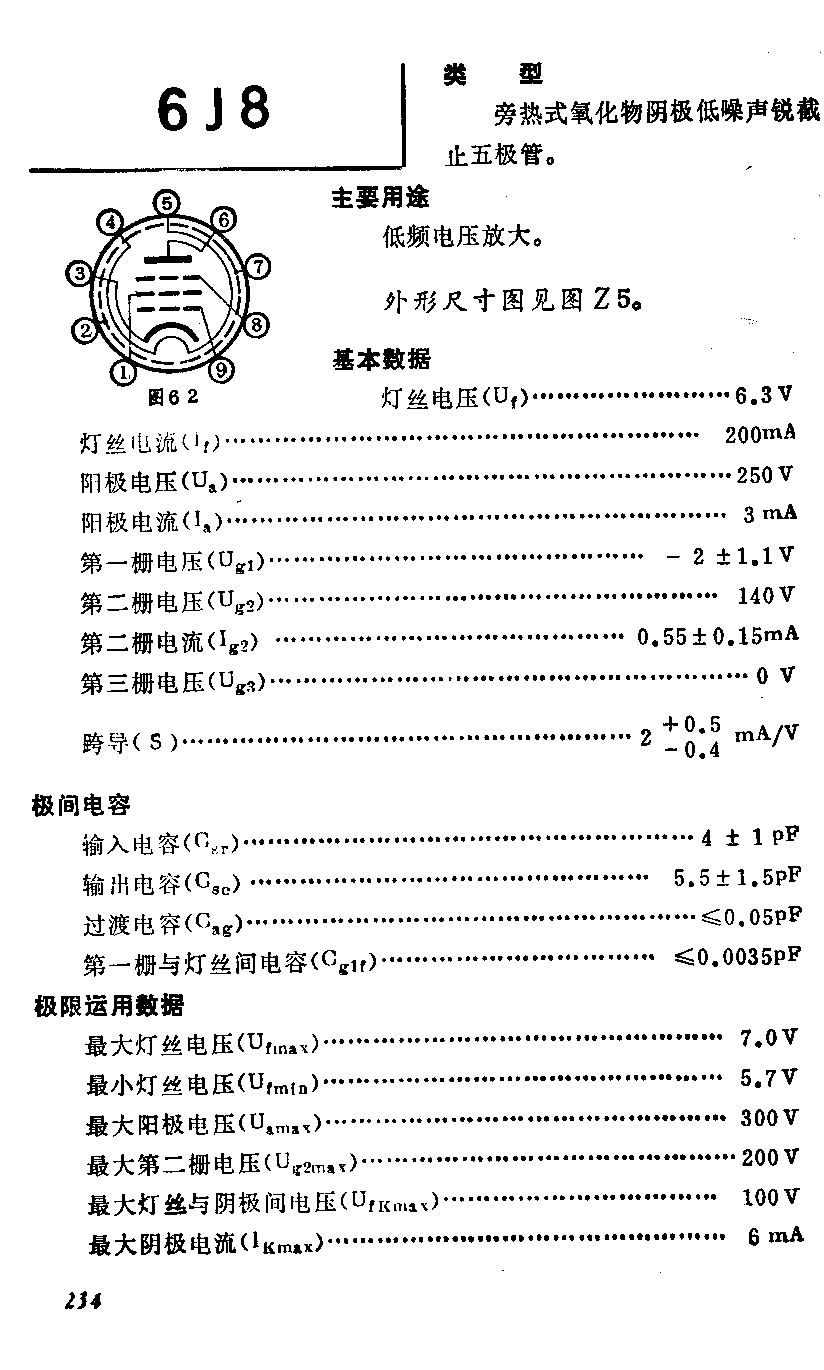 6J8
类 型
旁热式氧化物阴极低噪声锐截
止五极管。
主要用途
低频电压放大。
外形尺寸图见图Z5。
⑤
④ ⑥
③ ⑦
② ⑧
① ⑨
图62
基本数据
灯丝电压(Uf)……………………6.3V
灯丝电流(If)…………………………………………… 200mA
阳极电压(Ua)……………………………………………250V
阳极电流(Ia)…………………………………………… 3mA
第一栅电压(Ug1)…………………………………… －2±1.1V
第二栅电压(Ug2)………………………………………… 140V
第二栅电流(Ig2) ………………………………… 0.55±0.15mA
第三栅电压(Ug3)……………………………………………0V
跨导(S)…………………………………………2 +0.5 −0.4 mA/V
极间电容
输入电容(Csr)…………………………………………4±1pF
输出电容(Csc) …………………………………… 5.5±1.5pF
过渡电容(Cag)…………………………………………≤0.05pF
第一栅与灯丝间电容(Cg1f)………………………… ≤0.0035pF
极限运用数据
最大灯丝电压(Ufmax)…………………………………… 7.0V
最小灯丝电压(Ufmin)…………………………………… 5.7V
最大阳极电压(Uamax)…………………………………… 300V
最大第二栅电压(Ug2max)…………………………………200V
最大灯丝与阴极间电压(UfKmax)………………………… 100V
最大阴极电流(IKmax)…………………………………… 6mA
234